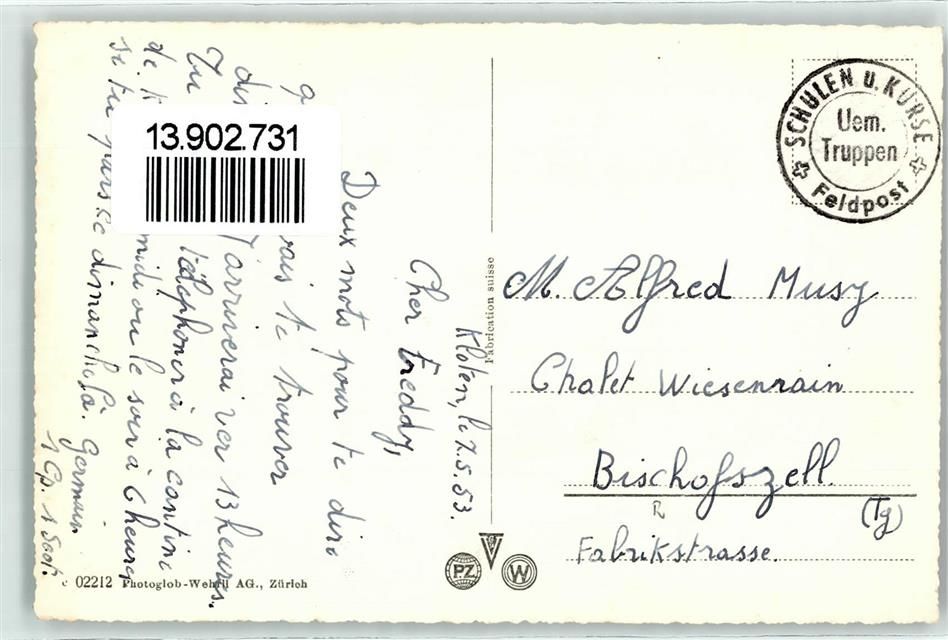 13.902.731
SCHULEN U. KURSE
Uem.
Truppen
Feldpost
Kloten, le 7.5.53.
Cher Freddy,
Deux mots pour te dire
rais te trouver
J'arriverai ver 13 heures.
Tu Téléphoner à la cantine
de midi ou le soir à 6 heures
si tu pars ce dimanche là.
Germain
1 Cp. 1
M. Alfred Musy
Chalet Wiesenrain
Bischofszell
(Tg)
R
Fabrikstrasse.
Fabrication suisse
02212 Photoglob-Wehrli AG., Zürich
PZ
V
W